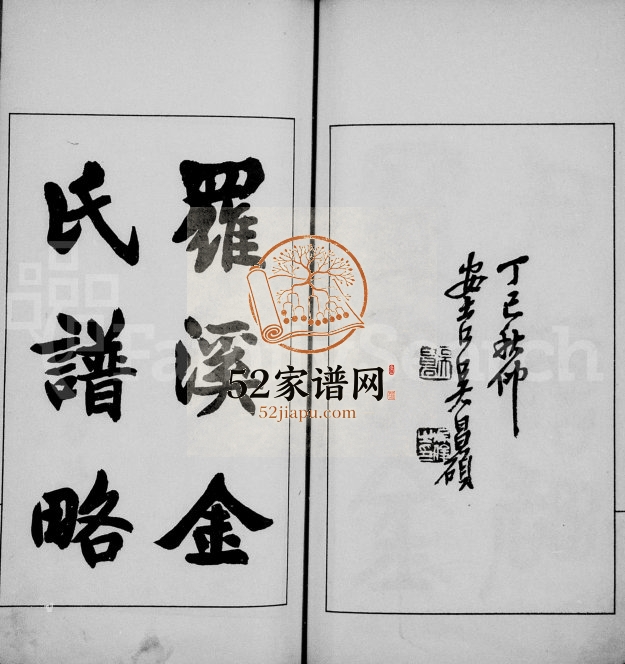 羅溪金
氏譜略
丁巳秋仲
安吉吳昌碩
52家谱网
52jiapu.com
FamilySearch